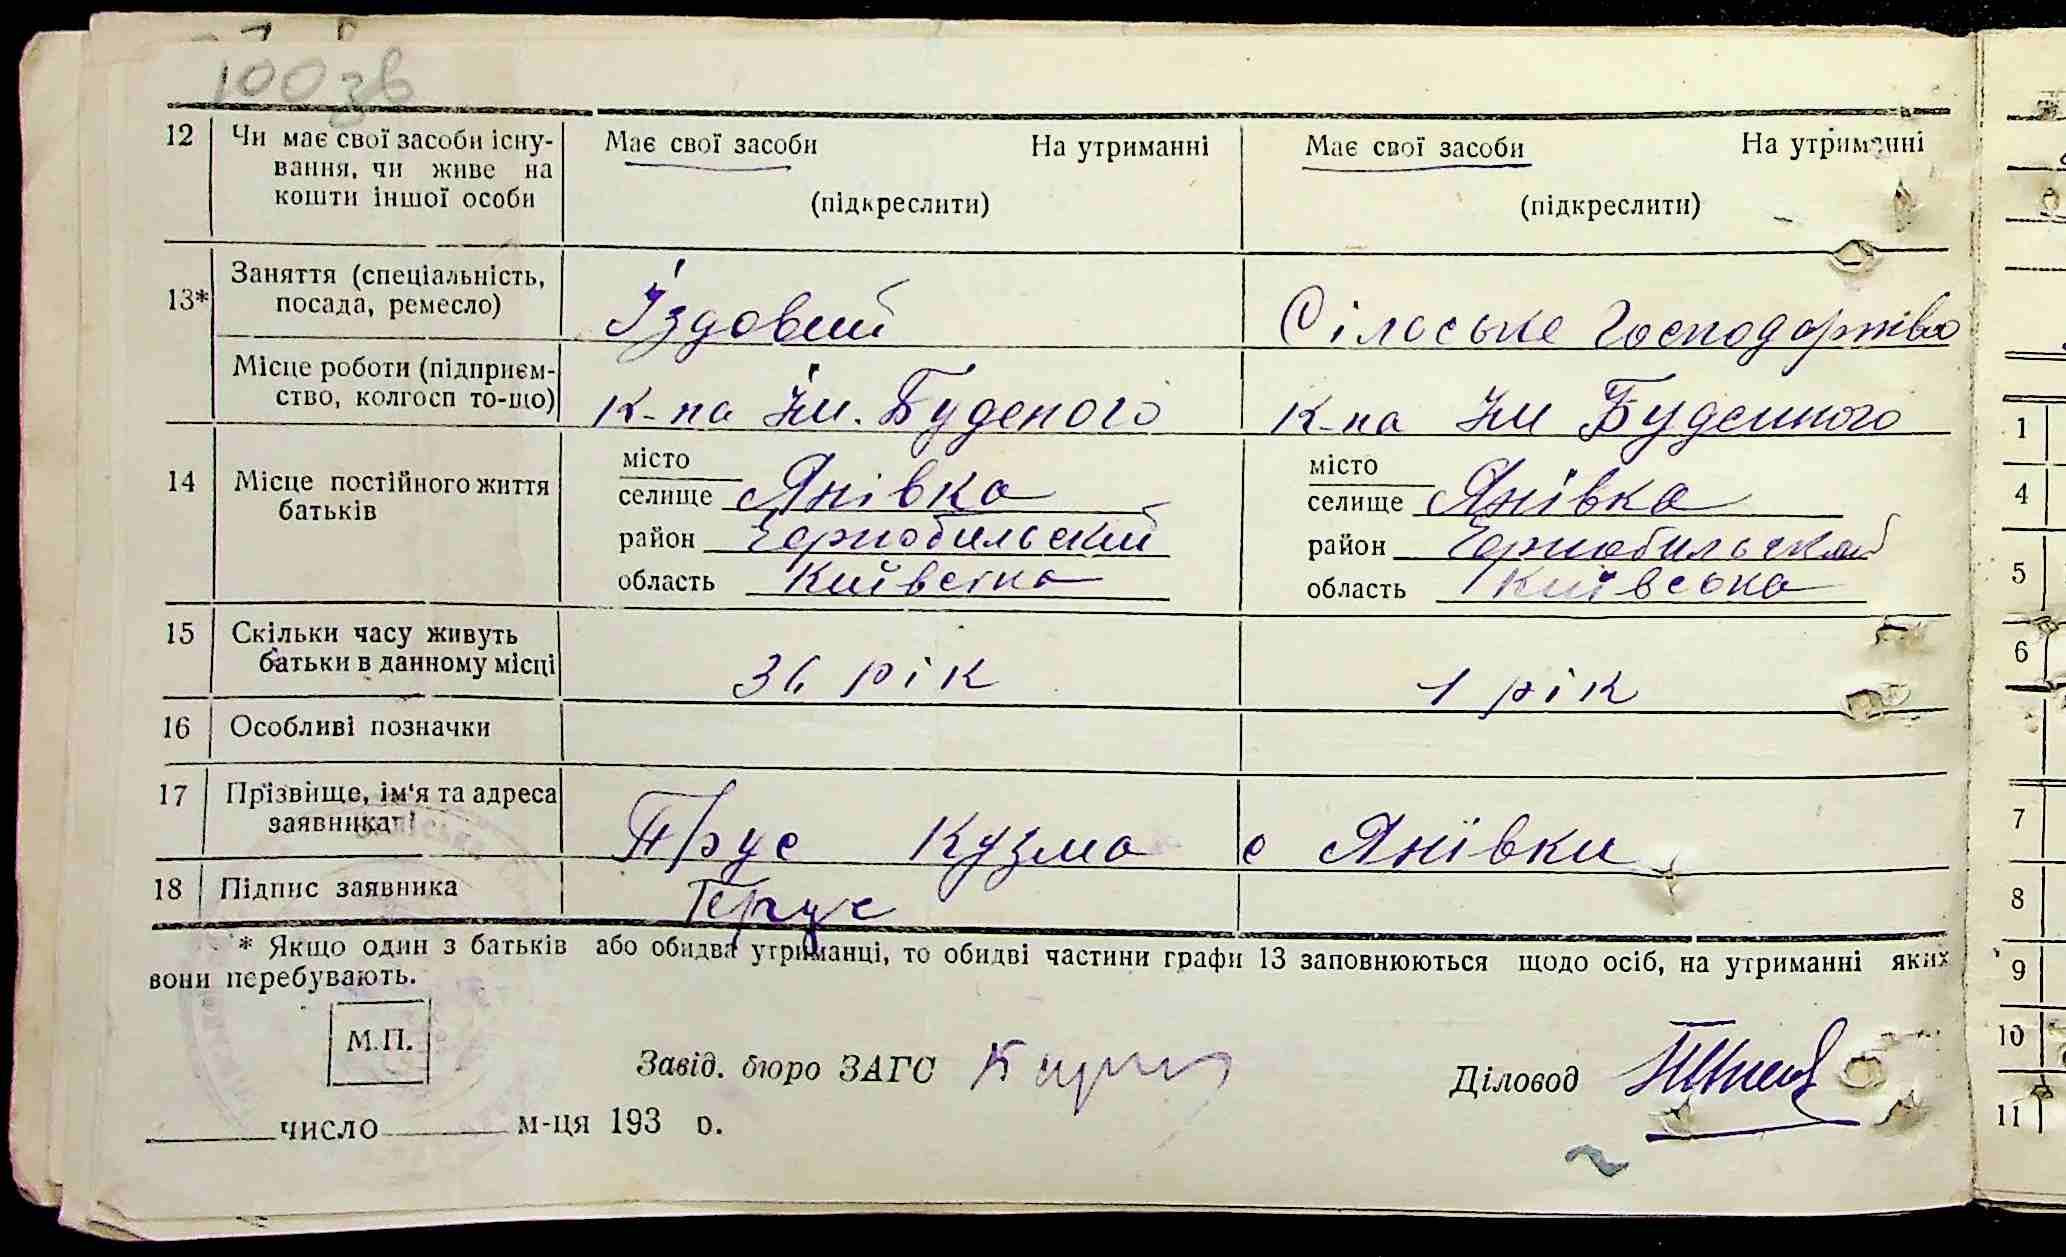 100зв
12 Чи має свої засоби існу- Має свої засоби На утриманні Має свої засоби На утриманні
вання, чи живе на
кошти іншої особи (підкреслити) (підкреслити)
13* Заняття (спеціальність,
посада, ремесло) Їздовий Сілоське Господорство
Місце роботи (підприєм-
ство, колгосп то-що) К-па Ім. Буденого К-па Ім Буденного
14 Місце постійного життя
батьків
місто місто
селище Янівка селище Янівка
район Чорнобильский район Чорнобильский
область Київська область Київсока
15 Скільки часу живуть
батьки в данному місці 36 рік 1 рік
16 Особливі позначки
17 Прізвище, ім'я та адреса
заявника Прус Кузма с Янївки
18 Підпис заявника Прус
* Якщо один з батьків або обидва утриманці, то обидві частини графи 13 заповнюються щодо осіб, на утриманні яких
вони перебувають.
М.П.
Завід. бюро ЗАГС Діловод
число м-ця 193 р.
1
4
5
6
7
8
9
10
11